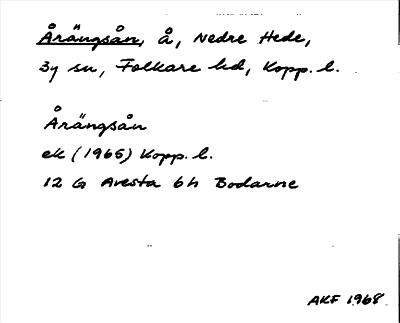 Årängsån, å, Nedre Hede,
By sn, Folkare hd, Kopp. l.
Årängsån
ek (1965) Kopp. l.
12 G Avesta 6h Bodarne
AKF 1968